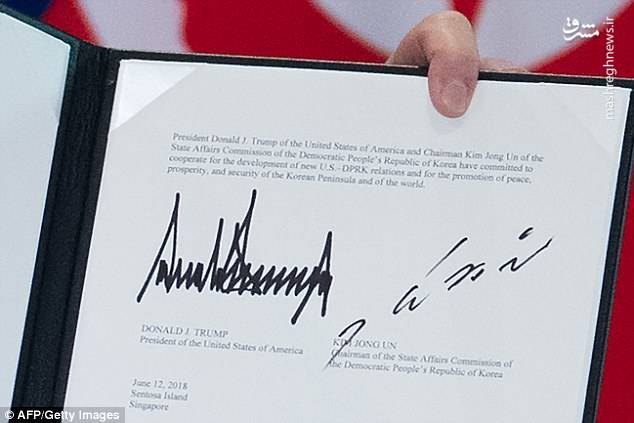 مشرق
mashreghnews.ir
President Donald J. Trump of the United States of America and Chairman Kim Jong Un of the
State Affairs Commission of the Democratic People's Republic of Korea have committed to
cooperate for the development of new U.S.–DPRK relations and for the promotion of peace,
prosperity, and security of the Korean Peninsula and of the world.
DONALD J. TRUMP
President of the United States of America
KIM JONG UN
Chairman of the State Affairs Commission of
the Democratic People's Republic of Korea
June 12, 2018
Sentosa Island
Singapore
© AFP/Getty Images